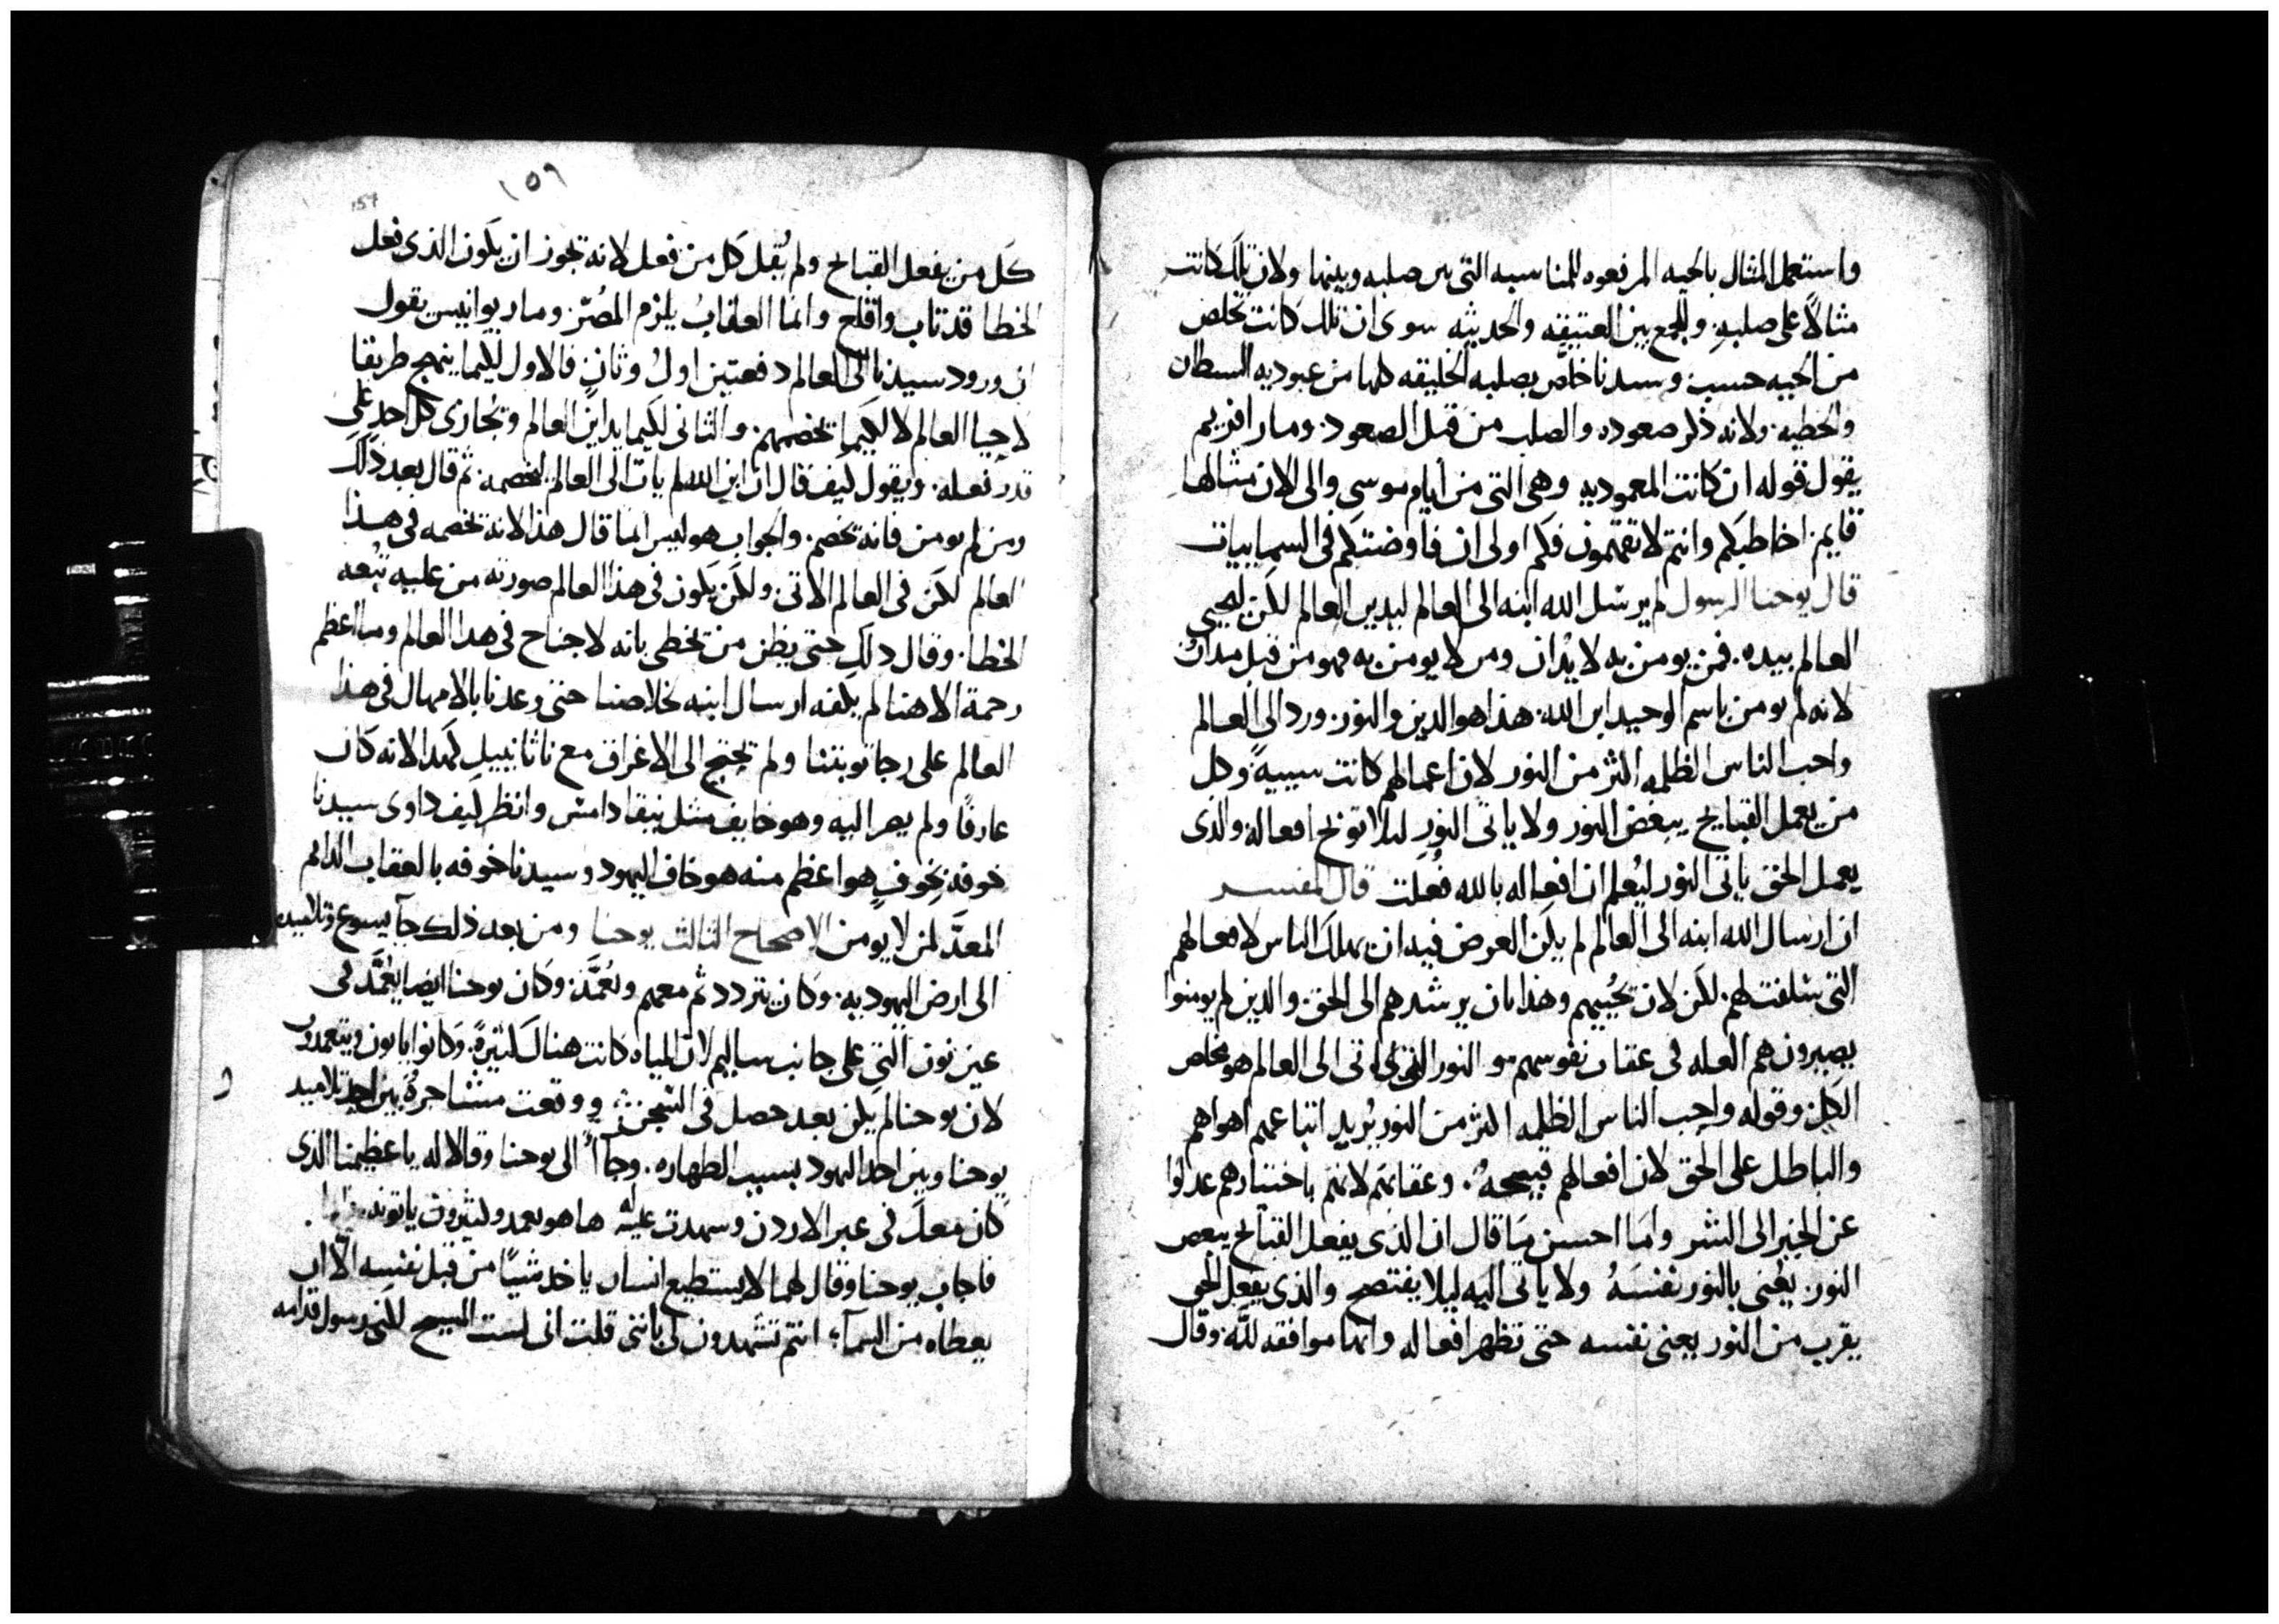 واستعمل المثال بالحيه المرفوعه للمناسبه التي بين صلبه وبينها ولان تلك كانت
مثالاً على صلبه. وللجمع بين العتيقه والحديثه سوى ان تلك كانت تخلص
من الحيه حسب وسيدنا خلّص بصلبه الخليقه كلها من عبوديه الشيطان
والخطيه. ولانه ذكر صعوده والصلب من قبل الصعود. ومار افريم
يقول قوله ان كانت المعموديه وهي التي من أيام موسى والى الان مثالها
قايم. اخاطبكم وانتم لا تفهمون فكم اولى ان فاوضتكم في السماييات
قال يوحنا الرسول لم يرسل الله ابنه الى العالم ليدين العالم لكن ليحيى
العالم بيده. فمن يومن به لا يُدان ومن لا يومن به فهو من قبل مدان
لانه لم يومن باسم الوحيد ابن الله. هذا هو الدين والنور. ورد الى العالم
واحب الناس الظلمه اكثر من النور لان اعمالهم كانت سييةً. وكل
من يعمل القبايح يبغض النور ولا ياتى النور ليلا توبخ افعاله. والذى
يعمل الحق ياتى النور ليُعلم ان افعاله بالله فُعلت قال المفسر
ان ارسال الله ابنه الى العالم لم يكن الغرض فيه ان يهلك الناس لافعالهم
التي سلفت لهم. لكن لان يُحييهم وهذا بان يرشدهم الى الحق. والذين لم يومنوا
يصيرون هم العله فى عقاب نفوسهم والنور الذى اتى الى العالم هو مخلص
الكل وقوله واحب الناس الظلمه اكثر من النور يُريد اتباعهم اهواهم
والباطل على الحق لان افعالهم قبيحهٌ. وعقابهم لانهم باختيارهم عدلوا
عن الخير الى الشر وما احسن ما قال ان الذى يفعل القبايح يبغض
النور. يعني بالنور نفسَهُ ولا ياتى اليه ليلا يفتضح والذى يفعل الحق
يقرب من النور يعني نفسه حتى تظهر افعاله وانها موافقه للّه. وقال
١٥٩
159
كل من يفعل القبايح ولم يُقل كل من فعل لانه يجوز ان يكون الذى فعل
الخطا قد تاب واقلع وانما العقابُ يلزم المُصرّ. ومار يوانيس يقول
ان ورود سيدنا الى العالم دفعتين اولُ وثانٍ فالاول لكيما ينهج طريقا
لاحيا العالم لا لكيما يخصمهم. والثانى لكيما يداين العالم ويُجازى كل احد على
قدر فعله. ويقول كيف قال ان ابن الله لم يات الى العالم ليخصمه ثم قال بعد ذلك
ومن لم يومن فانه يخصم. والجواب هو ليس انما قال هذا لانه يخصمه فى هذا
العالم لكن في العالم الاتى. ولكن يكون فى هذا العالم صورته من عليه تبعه
الخطا. وقال ذلك حتى يظن من يخطى بانه لا جناح في هذا العالم وما اعظم
رحمة الاهنا لم يكفه ارسال ابنه لخلاصنا حتى وعدنا بالامهال فى هذا
العالم على رجا توبتنا ولم يحتج الى الاغراق مع ناثانييل كهذا لانه كان
عارفًا ولم يصر اليه وهو خايف مثل نيقادامس وانظر كيف داوى سيدنا
خوفه بخوفٍ هو اعظم منه هو خاف اليهود وسيدنا خوفه بالعقاب الدايم
المعدّ لمن لا يومن الاصحاح الثالث يوحنا ومن بعد ذلك جآ يسوع وتلاميذه
الى ارض اليهوديه. وكان يتردد ثم معهم ويُعمّد. وكان يوحنا ايضا يُعمّد فى
عين نون التى على جانب ساليم لان المياه كانت هناك كثيرةً. وكانوا ياتون ويتعمدون
لان يوحنا لم يكن بعد حصل فى السجن ووقعت مشاجرةٌ بين احد تلاميذ
يوحنا وبين احد اليهود بسبب الطهاره. وجآأ الى يوحنا وقالا له يا عظيمنا الذى
كان معك في عبر الاردن وشهدت عليه ها هو يعمد وكثيرون ياتونه
فاجاب يوحنا وقال لهما لا يستطيع انسان ياخذ شيئًا من قبل نفسه الّا ان
يعطاه من السمآء. انتم تشهدون لى باننى قلت انى لست المسيح لكنى رسول قدامه